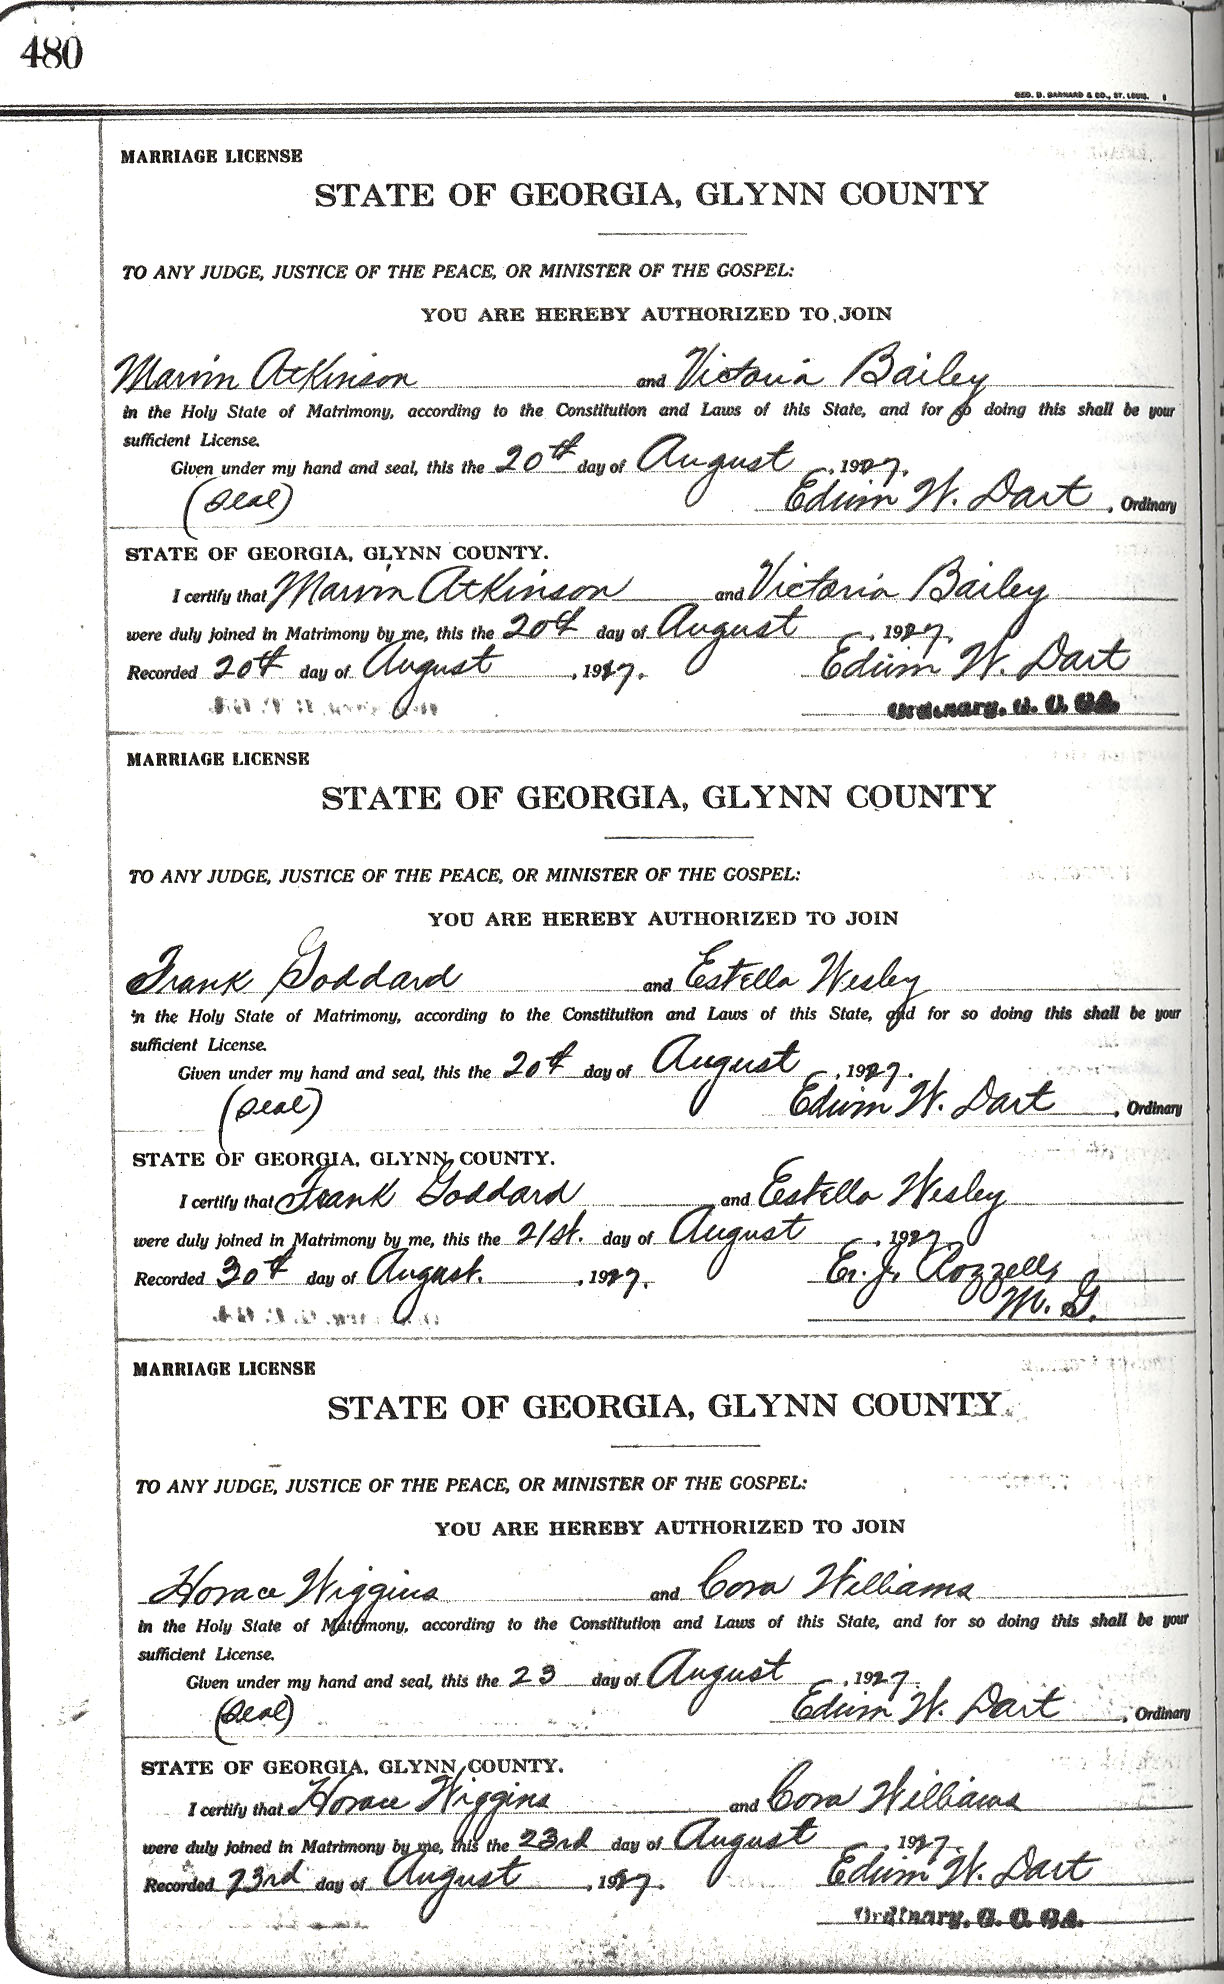 480
GEO. D. BARNARD & CO., ST. LOUIS.
MARRIAGE LICENSE
STATE OF GEORGIA, GLYNN COUNTY
TO ANY JUDGE, JUSTICE OF THE PEACE, OR MINISTER OF THE GOSPEL:
YOU ARE HEREBY AUTHORIZED TO JOIN
Marvin Atkinson and Victoria Bailey
in the Holy State of Matrimony, according to the Constitution and Laws of this State, and for so doing this shall be your
sufficient License.
Given under my hand and seal, this the 20th day of August, 1927.
(Seal) Edwin W. Dart, Ordinary
STATE OF GEORGIA, GLYNN COUNTY.
I certify that Marvin Atkinson and Victoria Bailey
were duly joined in Matrimony by me, this the 20th day of August, 1927.
Recorded 20th day of August, 1927. Edwin W. Dart
Ordinary, G. C. GA.
MARRIAGE LICENSE
STATE OF GEORGIA, GLYNN COUNTY
TO ANY JUDGE, JUSTICE OF THE PEACE, OR MINISTER OF THE GOSPEL:
YOU ARE HEREBY AUTHORIZED TO JOIN
Frank Goddard and Estella Wesley
in the Holy State of Matrimony, according to the Constitution and Laws of this State, and for so doing this shall be your
sufficient License.
Given under my hand and seal, this the 20th day of August, 1927.
(Seal) Edwin W. Dart, Ordinary
STATE OF GEORGIA, GLYNN COUNTY.
I certify that Frank Goddard and Estella Wesley
were duly joined in Matrimony by me, this the 21st. day of August, 1927.
Recorded 30th day of August., 1927. J. Rozzells
M. G.
MARRIAGE LICENSE
STATE OF GEORGIA, GLYNN COUNTY
TO ANY JUDGE, JUSTICE OF THE PEACE, OR MINISTER OF THE GOSPEL:
YOU ARE HEREBY AUTHORIZED TO JOIN
Horace Wiggins and Cora Williams
in the Holy State of Matrimony, according to the Constitution and Laws of this State, and for so doing this shall be your
sufficient License.
Given under my hand and seal, this the 23 day of August, 1927.
(Seal) Edwin W. Dart, Ordinary
STATE OF GEORGIA, GLYNN COUNTY.
I certify that Horace Wiggins and Cora Williams
were duly joined in Matrimony by me, this the 23rd day of August, 1927.
Recorded 23rd day of August, 1927. Edwin W. Dart
Ordinary, G. C. GA.